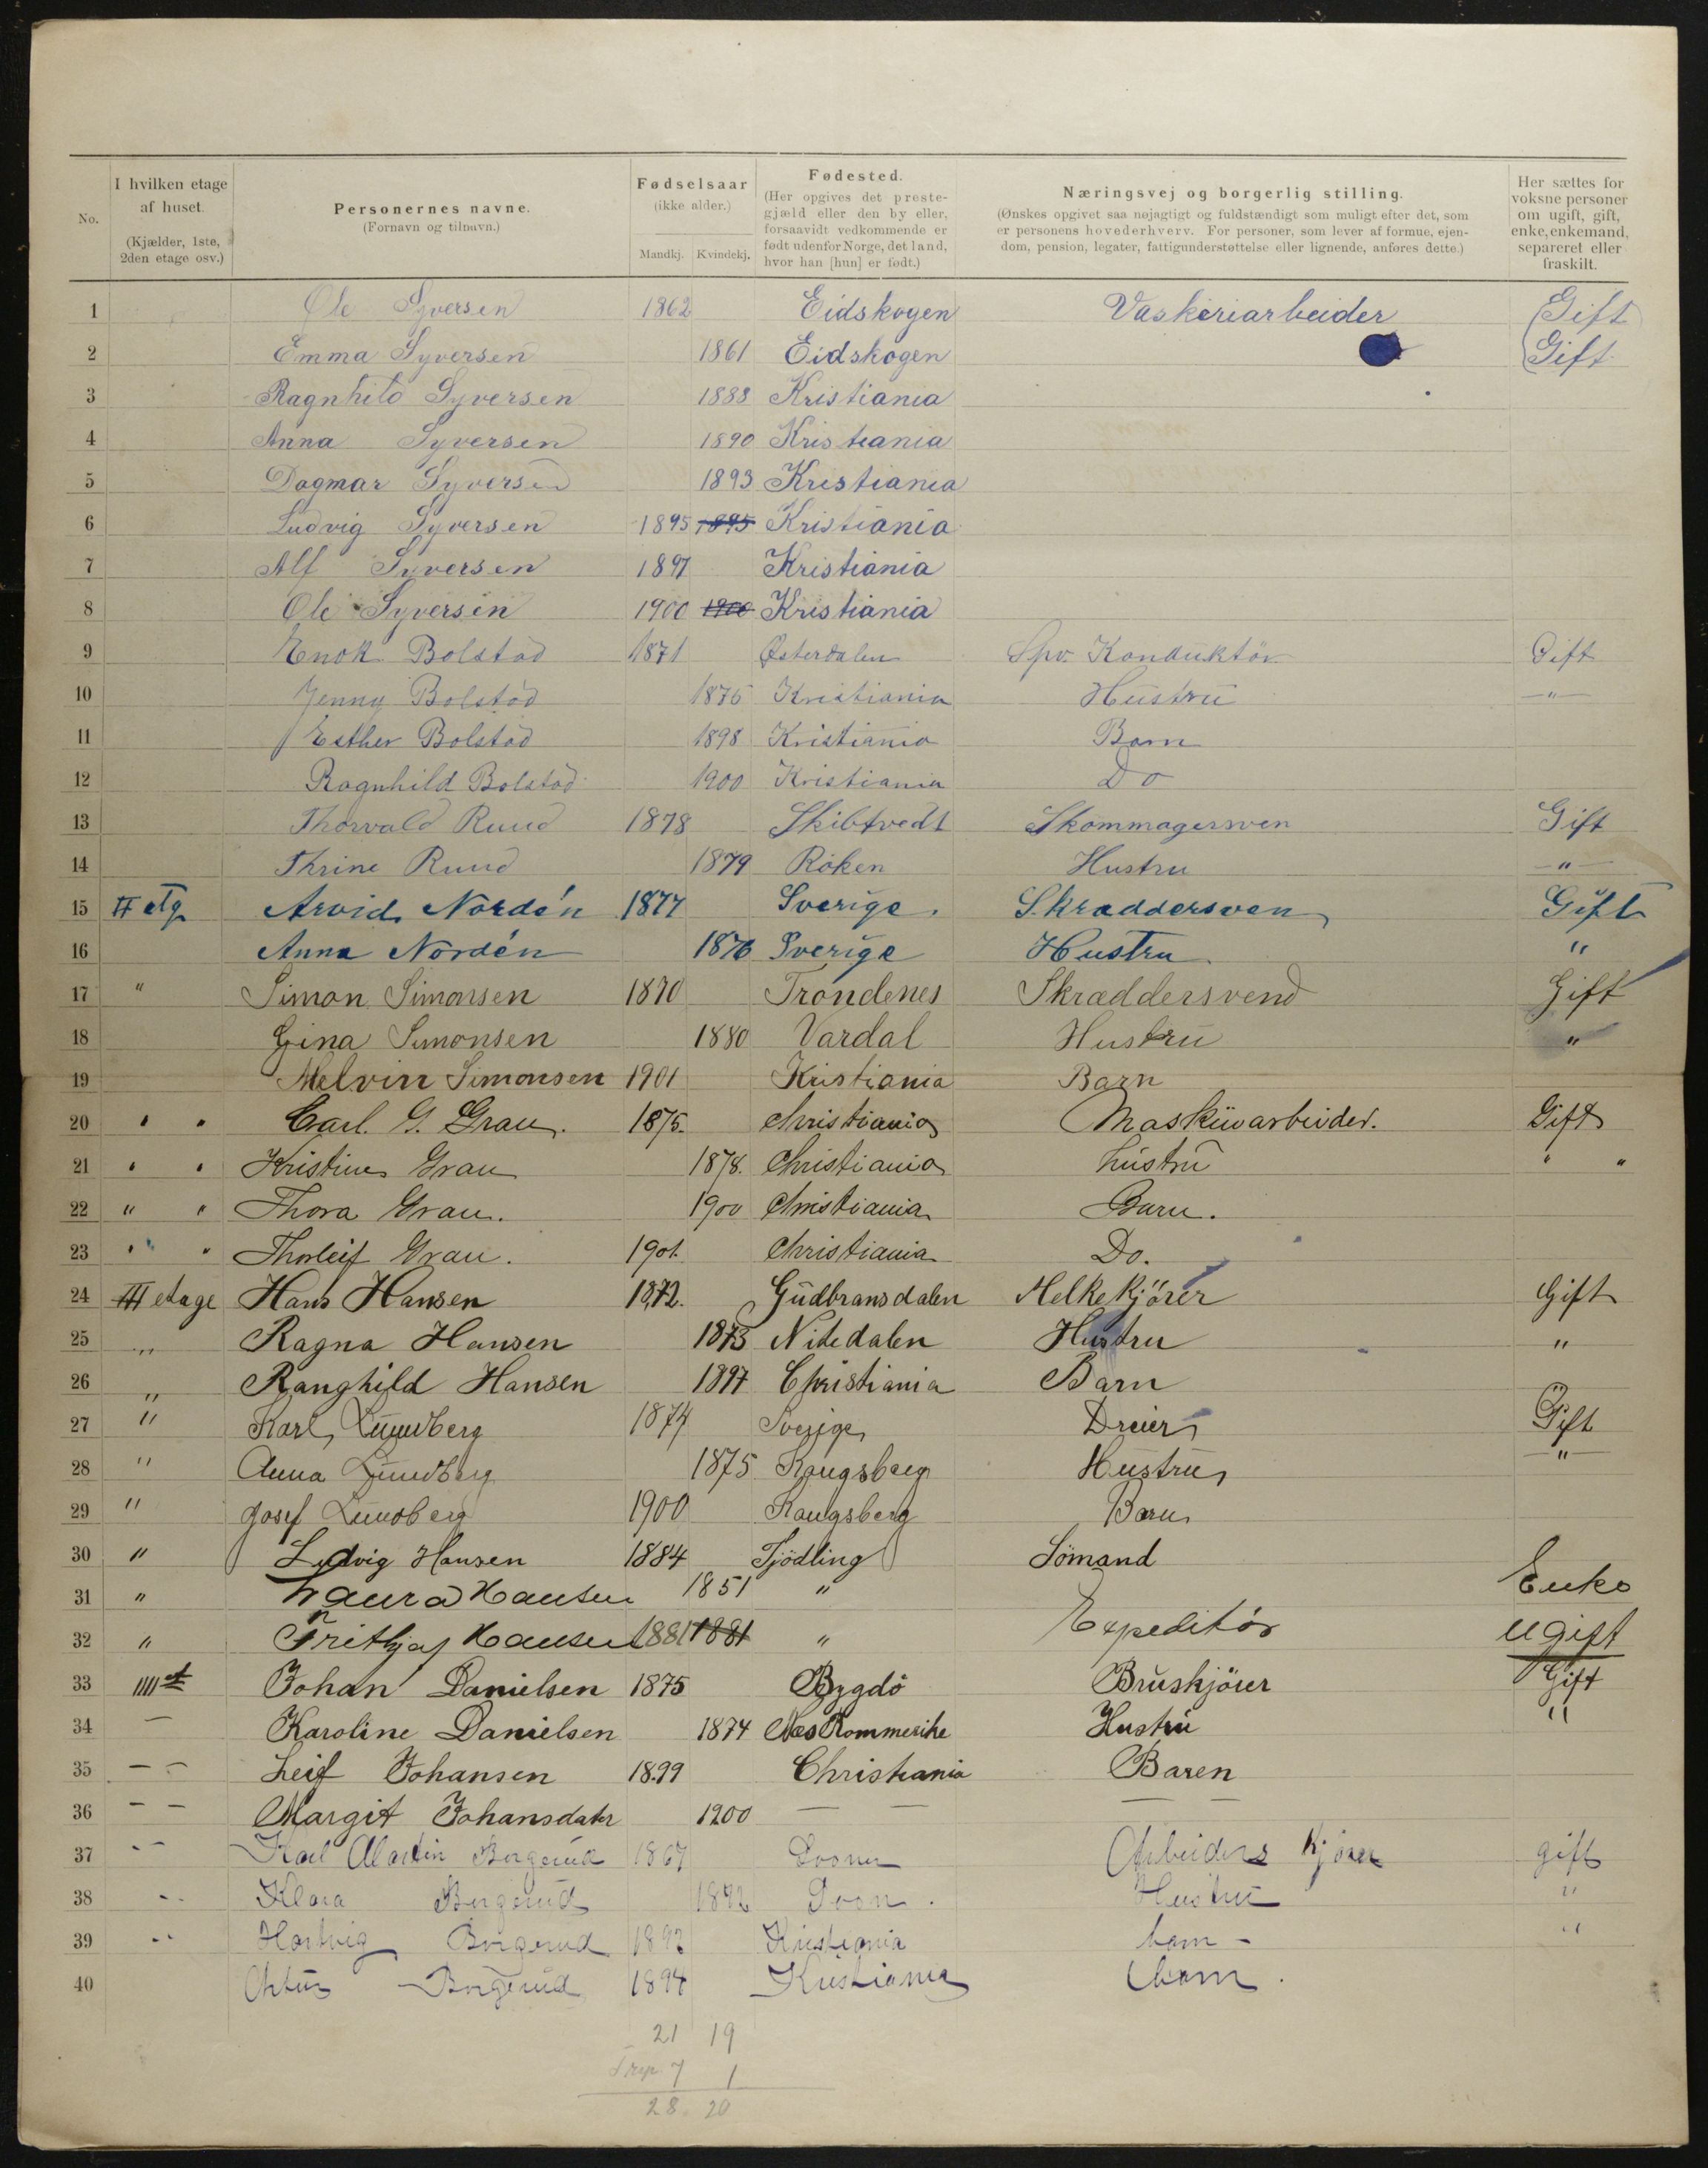 No.
I hvilken etage af huset.
(Kjælder, 1ste, 2den etage osv.)
Personernes navne.
(Fornavn og tilnavn.)
Fødselsaar
(ikke alder.)
Mandkj. Kvindekj.
Fødested.
(Her opgives det prestegjæld eller den by eller, forsaavidt vedkommende er født udenfor Norge, det land, hvor han [hun] er født.)
Næringsvej og borgerlig stilling.
(Ønskes opgivet saa nøjagtigt og fuldstændigt som muligt efter det, som er personens hovederhverv. For personer, som lever af formue, ejendom, pension, legater, fattigunderstøttelse eller lignende, anføres dette.)
Her sættes for voksne personer om ugift, gift, enke, enkemand, separeret eller fraskilt.
1 Ole Syversen 1862 Eidskogen Vaskeriarbeider Gift
2 Emma Syversen 1861 Eidskogen Gift
3 Ragnhild Syversen 1888 Kristiania
4 Anna Syversen 1890 Kristiania
5 Dagmar Syversen 1893 Kristiania
6 Ludvig Syversen 1895 1895 Kristiania
7 Alf Syversen 1897 Kristiania
8 Ole Syversen 1900 1900 Kristiania
9 Enok Bolstad 1871 Østerdalen Spv. Konduktör Gift
10 Jenny Bolstad 1875 Kristiania Hustru —"—
11 Esther Bolstad 1898 Kristiania Barn
12 Ragnhild Bolstad 1900 Kristiania Do
13 Thorvald Ruud 1878 Skibtvedt Skommagersven Gift
14 Thrine Ruud 1879 Röken Hustru —"—
15 II etg Arvid Nordén 1877 Sverige. Skraddersven Gift
16 Anna Nordén 1876 Sverige Hustru "
17 " Simon Simonsen 1870 Trondenes Skraddersvend Gift
18 Gina Simonsen 1880 Vardal Hustru "
19 Melvin Simonsen 1901 Kristiania Barn
20 " " Carl. G. Grau. 1875. Christiania Maskinarbeider. Gift
21 " " Kristine Grau 1878. Christiania hustru " "
22 " " Thora Grau. 1900 Christiania Barn.
23 " " Thorleif Grau. 1901. Christiania Do.
24 III etage Hans Hansen 1872. Gudbransdalen Melkekjörer Gift
25 " Ragna Hansen 1873 Nitedalen Hustru "
26 " Ranghild Hansen 1897 Christiania Barn
27 " Karl Lundberg 1874 Sverige Dreier Gift
28 " Anna Lundberg 1875 Kongsberg Hustru —"—
29 " Josef Lundberg 1900 Kongsberg Barn
30 " Ludvig Hansen 1884 Tjödling Sömand
31 " Laura Hansen 1851 " Enke
32 " Frithjof Hansen 1881 1881 " Expeditör Ugift
33 IIII et Johan Danielsen 1875 Bygdö Bruskjörer Gift
34 — Karoline Danielsen 1874 Næs Rommerike Hustru "
35 — — Leif Johansen 1899 Christiania Baren
36 — — Margit Johansdatr 1900 — — — —
37 - - Karl Martin Borgerud 1867 Arbeider Kjörer gift
38 - - Klara Borgerud 1872 Hustru "
39 - - Hartvig Borgerud 1892 Kristiania barn - "
40 Artur Borgerud 1894 Kristiania barn.
21 19
7 1
28. 20